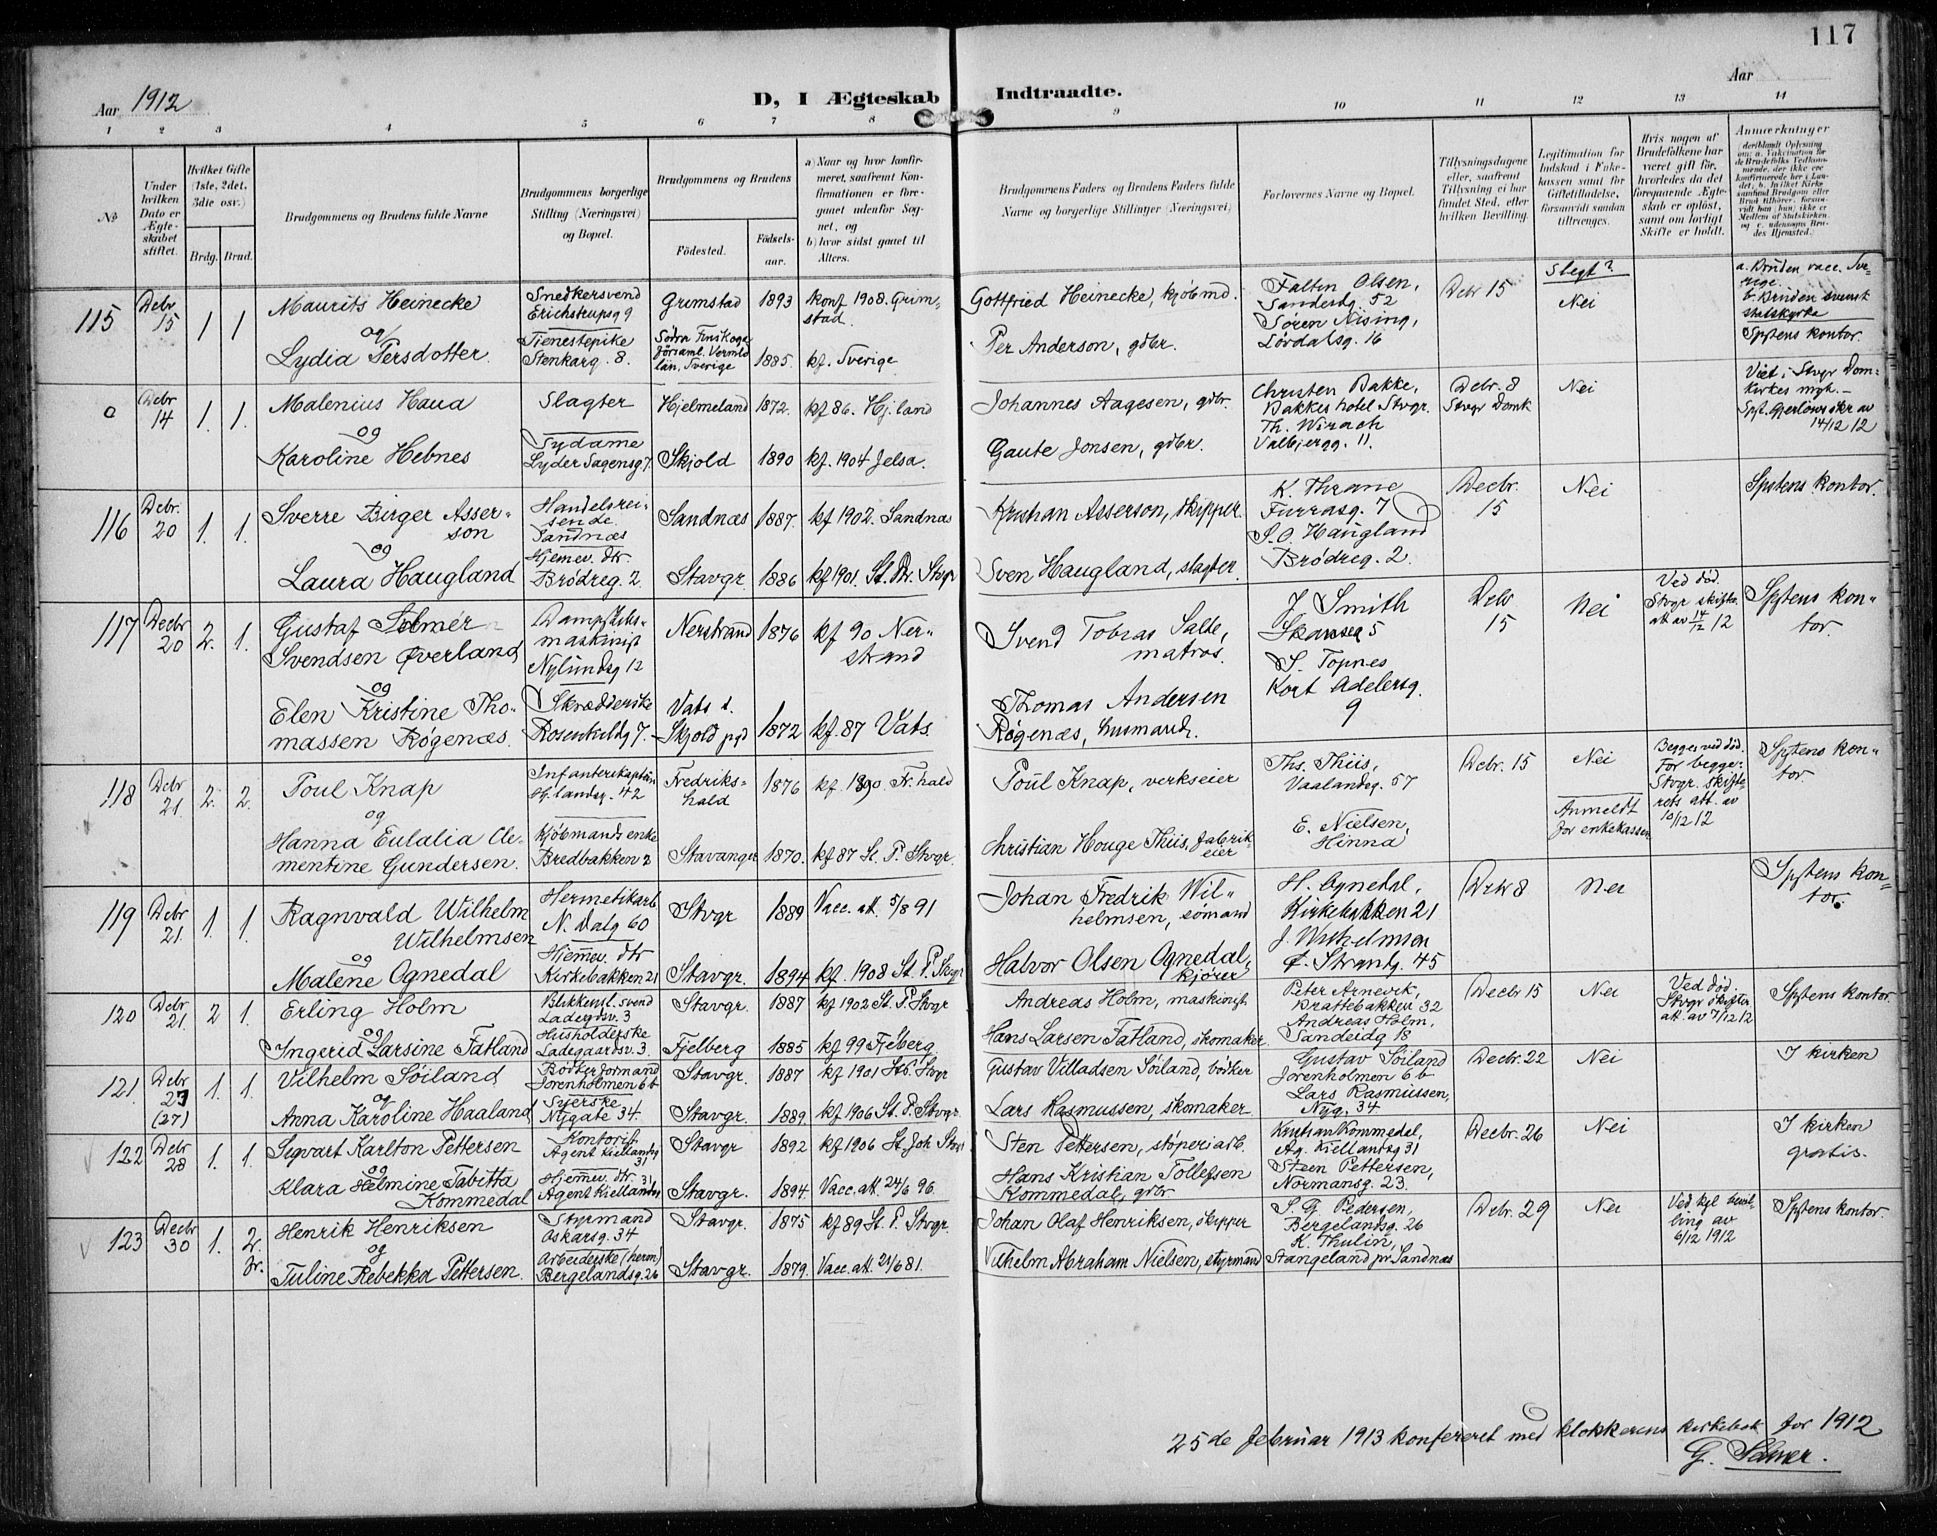 117
Aar 1912
D, I Ægteskab Indtraadte.
Aar
1 2 3 4 5 6 7 8 9 10 11 12 13 14
№
Under hvilken Dato er Ægteskabet stiftet.
Hvilket Gifte (1ste, 2det, 3die osv.)
Brdg. Brud.
Brudgommens og Brudens fulde Navne
Brudgommens borgerlige Stilling (Næringsvei) og Bopæl.
Brudgommens og Brudens
Födested. Födselsaar.
a) Naar og hvor konfirmeret, saafremt Konfirmationen er foregaaet udenfor Sognet, og
b) hvor sidst gaaet til Alters.
Brudgommens Faders og Brudens Faders fulde Navne og borgerlige Stillinger (Næringsvei)
Forlovernes Navne og Bopæl.
Tillysningsdagene eller, saafremt Tillysning ei har fundet Sted, efter hvilken Bevilling.
Legitimation for Indskud i Enkekassen samt for Giftetilladelse, forsaavidt saadan tiltrænges.
Hvis nogen af Brudefolkene har været gift før, hvorledes da det foregaaende Ægteskab er opløst, samt om lovligt Skifte er holdt.
Anmærkninger
115
Debr 15
1 1
Maurits Heinecke
og
Lydia Persdotter
Snedkersvend
Erichstrupsg 9
Tjenestepike
Stenkarg. 8.
Grimstad 1893
konf 1908. Grimstad.
Södra Finskoga
församl. Vermlän, Sverige
1885. kf. Sverige
Gottfried Heinecke, kjøbmd.
Per Anderson, gdbr.
Faltin Olsen,
Sandesdg. 52
Søren Nising,
Løvdalsg. 16
Debr 15
Slegt?
Nei
a. Bruden, vacc. Sverige.
b. Bruden svensk statskyrka
Spstens kontor.
o
Debr 14
1. 1.
Malenius Haua
og
Karoline Hebnes
Slagter
Sydame
Lyder Sagensg 7.
Hjelmeland 1872. kf 86. Hj.land
Skjold 1890 kf. 1904 Jelsa.
Johannes Aagesen, gdbr.
Gaute Jonsen, gdbr.
Christen Bakke,
Bakkes hotel Stvgr.
Th. Wirach
Valbjergg. 11.
Debr. 8
Stvgr Domk
Nei
Viet i Stvgr Domkirkes mgh. —
14/12 12
116
Debr. 20
1. 1.
Sverre Birger Asserson
og
Laura Haugland
Handelsreisende
Sandnæs
Hjemev. dtr
Brödreg. 2.
Sandnæs 1887. kf 1902. Sandnæs
Stavgr. 1886 kf 1901. St. Pt. Stvgr
Kristian Asserson, skipper.
Sven Haugland, slagter.
K. Thrane
Furrasg. 7
S. O. Haugland
Brödreg. 2.
Decbr. 15
Nei
Spstens kontor.
117
Decbr 20
2. 1.
Gustaf Selmer
Svendsen Øverland
og
Elen Kristine Thomassen Røgenæs.
Dampskibsmaskinist
Nylundsg 12
Skrædderske
Rosenkildg 7.
Nerstrand 1876 kf 90 Nerstrand
Vats s.
Skjold pgd 1872 kf. 87 Vats.
Svend Tobias Salte, matros.
Thomas Andersen
Røgenæs, husmand.
J Smith
Skanseg 5
S. Topnes
Kort Adelersg. 9
Debr 15
Nei
Ved død.
Stvgr skifter.
att av 14/12 12
Spstens kontor.
118
Debr 21.
2. 2.
Poul Knap
og
Hanna Eulalia Clementine Gundersen.
Infanterikaptein
Hj.landsg. 42
Kjøbmands enke
Bredbakken 2
Fredrikshald 1876 kf. 1890 Fr.hald
Stavanger 1870. kf 87 St. P. Stvgr.
Poul Knap, verkseier
Christian Houge Thiis, fabrikeier
Ths. Thiis,
Vaalandsg. 57
E. Nielsen,
Hinna
Debr. 15
Nei
Anmeldt for enkekassen
Begge ved død.
For begge.
Stvgr. skifterets att. av
10/12 12
Spstens kontor.
119
Debr 21.
1. 1.
Ragnvald Wilhelm
Wilhelmsen
og
Malene Ognedal
Hermetikarb
N. Dalg 60
Hjemev. dtr
Kirkebakken 21
Stvgr 1889 Vacc. att. 5/8 91
Stavgr. 1894 kf. 1908 St. P. Stvgr
Johan Fredrik Wilhelmsen, sömand
Halvor Olsen Ognedal, kjører
H. Ognedal,
Kirkebakken 21
J. Wilhelmsen
Ø. Strandg. 45
Debr 8
Nei
Spstens kontor.
120
Debr 21.
2 1.
Erling Holm
og
Ingerid Larsine Fatland
Blikkensl. svend
Ladegdsv. 3
Husholderske
Ladegaardsv. 3.
Stavgr. 1887 kf 1902 St. P. Stvgr
Fjelberg 1885 kf 99 Fjelberg
Andreas Holm, maskinist
Hans Larsen Fatland, skomaker
Peter Arnevik,
Brattebakken 32
Andreas Holm,
Sandeidg 18
Decbr 15
Nei
Ved død.
Stvgr skifter
att. av 7/12 12
Spstens kontor.
121.
Debr 27
(27)
1. 1.
Vilhelm Søiland
og
Anna Karoline Haaland
Bødkerformand
Jorenholmen 6b
Syerske
Nygate 34.
Stavgr. 1887 kf 1901 Stvgr
Stavgr. 1889. kf 1906 St. P. Stvgr.
Gustav Villadsen Søiland, bødker
Lars Rasmussen, skomaker
Gustav Søiland
Jorenholmen 6b
Lars Rasmussen,
Nyg. 34
Decbr. 22
Nei
I kirken
122
Debr 28
1. 1.
Sigvart Karlton Pettersen
og
Klara Helmine Tabitta
Kommedal
Kontorist
Agent Kiellandsg 31
Hjemev. dtr 31
Agent Kiellandsg
Stavgr 1892 kf 1906 St Joh Stvgr
Stavgr. 1894. Vacc. att. 24/6 96.
Sten Pettersen, støperiarb.
Hans Kristian Tollefsen
Kommedal, gdbr
Kristian Kommedal,
Ag. Kiellandsg 31
Steen Pettersen,
Normansg. 23.
Decbr. 26
Nei
I kirken
gratis.
123
Decbr 30
1. 2.
Henrik Henriksen
og
Tuline Rebekka Pettersen.
Styrmand
Oskarsg. 34
Arbeiderske (herm)
Bergelandsg. 26
Stavgr. 1875 kf 89 St. P. Stvgr.
Stavgr. 1879. Vacc. att. 24/6 81.
Johan Olaf Henriksen, skipper
Vilhelm Abraham Nielsen, styrmand
S. G. Pedersen,
Bergelandsg. 26
K. Thulin,
Stangeland pr. Sandnæs
Debr. 29
Nei
Ved kgl bevilling av
6/12 1912
Spstens kontor.
25de februar 1913 konfereret med klokkerens kirkebok for 1912